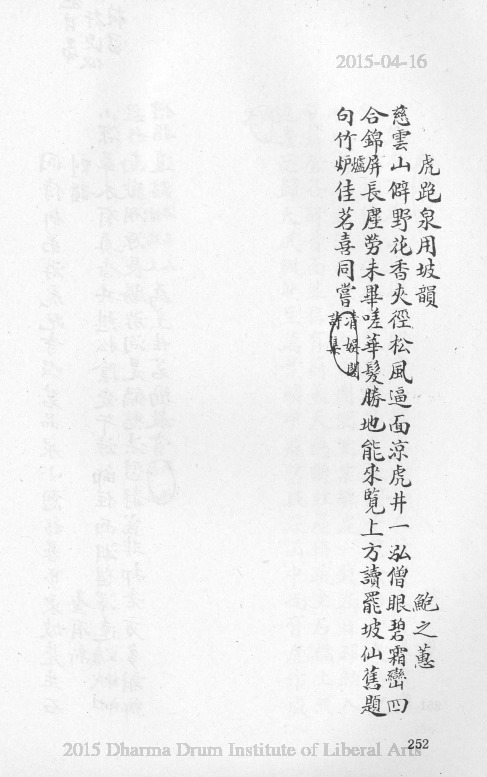 2015-04-16
虎跑泉用坡韻 鮑之蕙
慈雲山僻野花香夾徑松風逼面涼虎井一泓僧眼碧霜巒四
合錦屏長塵勞未畢嗟華髮勝地能來覽上方讀罷坡仙舊題
句竹炉佳茗喜同嘗
爐
清娛閣
詩集
252
2015 Dharma Drum Institute of Liberal Arts